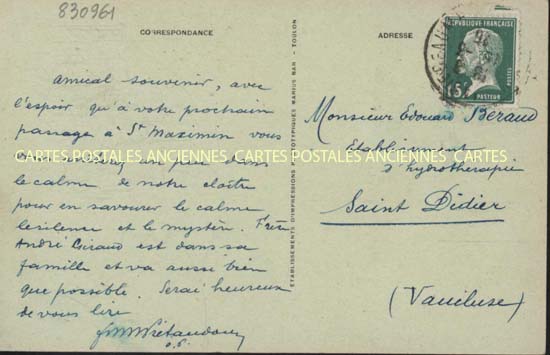 830961
CORRESPONDANCE
ADRESSE
REPUBLIQUE FRANÇAISE
15c
POSTES
PASTEUR
Amical souvenir, avec
l'espoir qu'à votre prochain
passage à St Maximin vous
un peu dans
le calme de notre cloître
pour en savourer le calme
le silence et le mystère. Frère
André Giraud est dans sa
famille et va aussi bien
que possible. Serai heureux
de vous lire
Monsieur Edouard Béraud
Etablissement
d'hydrothérapie
Saint Didier
(Vaucluse)
CARTES POSTALES ANCIENNES CARTES POSTALES ANCIENNES CARTES
ÉTABLISSEMENTS D'IMPRESSIONS PHOTOTYPIQUES MARIUS BAR - TOULON